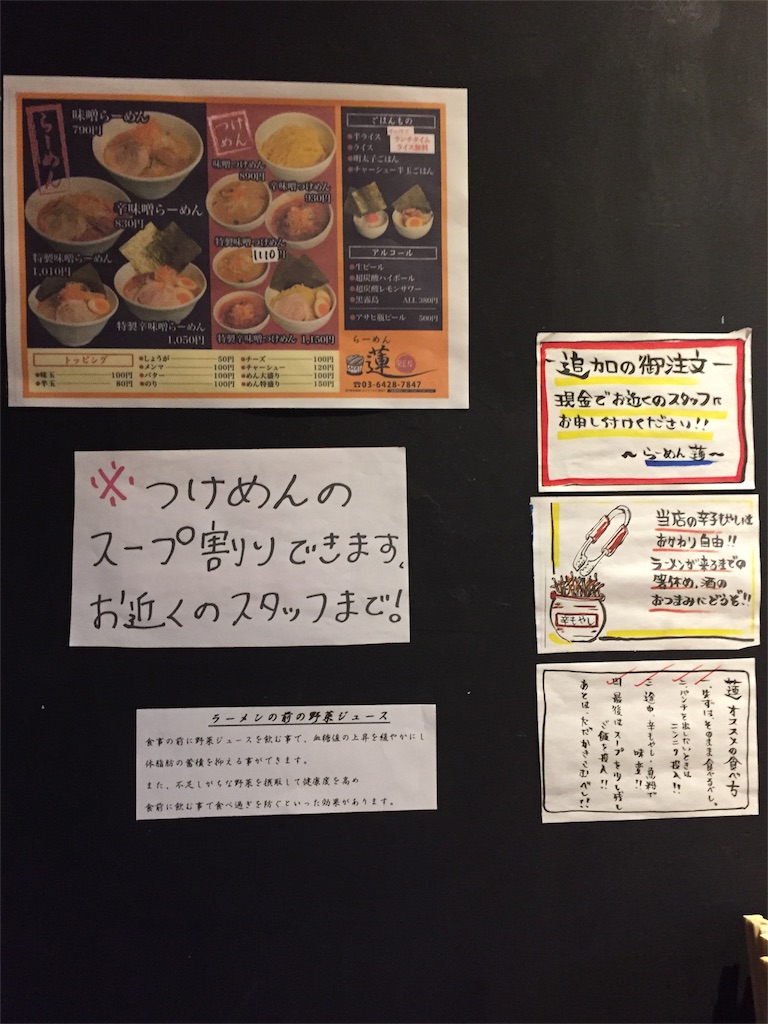 らーめん
味噌らーめん
790円
辛味噌らーめん
830円
特製味噌らーめん
1,010円
特製辛味噌らーめん
1,050円
つけめん
味噌つけめん
890円
辛味噌つけめん
930円
特製味噌つけめん
1110円
特製辛味噌つけめん 1,150円
ごはんもの
●半ライス
●ライス
ランチタイム
ライス無料
●明太子ごはん
●チャーシュー半玉ごはん
アルコール
●生ビール
●超炭酸ハイボール
●超炭酸レモンサワー
●黒霧島 ALL 380円
●アサヒ瓶ビール 500円
トッピング
●味玉 100円
●半玉 80円
●しょうが 50円
●メンマ 100円
●バター 100円
●のり 100円
●チーズ 100円
●チャーシュー 120円
●めん大盛り 100円
●めん特盛り 150円
らーめん
蓮
☎03-6428-7847
※つけめんの
スープ割りできます。
お近くのスタッフまで!
ラーメンの前の野菜ジュース
食事の前に野菜ジュースを飲む事で、血糖値の上昇を緩やかにし
体脂肪の蓄積を抑える事ができます。
また、不足しがちな野菜を摂取して健康度を高め
食前に飲む事で食べ過ぎを防ぐといった効果があります。
追加の御注文
現金でお近くのスタッフに
お申し付けください!!
〜らーめん 蓮〜
当店の辛もやしは
おかわり自由!!
ラーメンが来るまでの
箸休め、酒の
おつまみにどうぞ!!
辛もやし
蓮 オススメの食べ方
一、まずは、そのまま食べるべし。
二、パンチを出したいときは
ニンニク投入!!
三、途中、辛もやし・魚粉で
味変!!
四、最後はスープを少し残し
ご飯を投入!!
あとは、ただかきこむべし!!